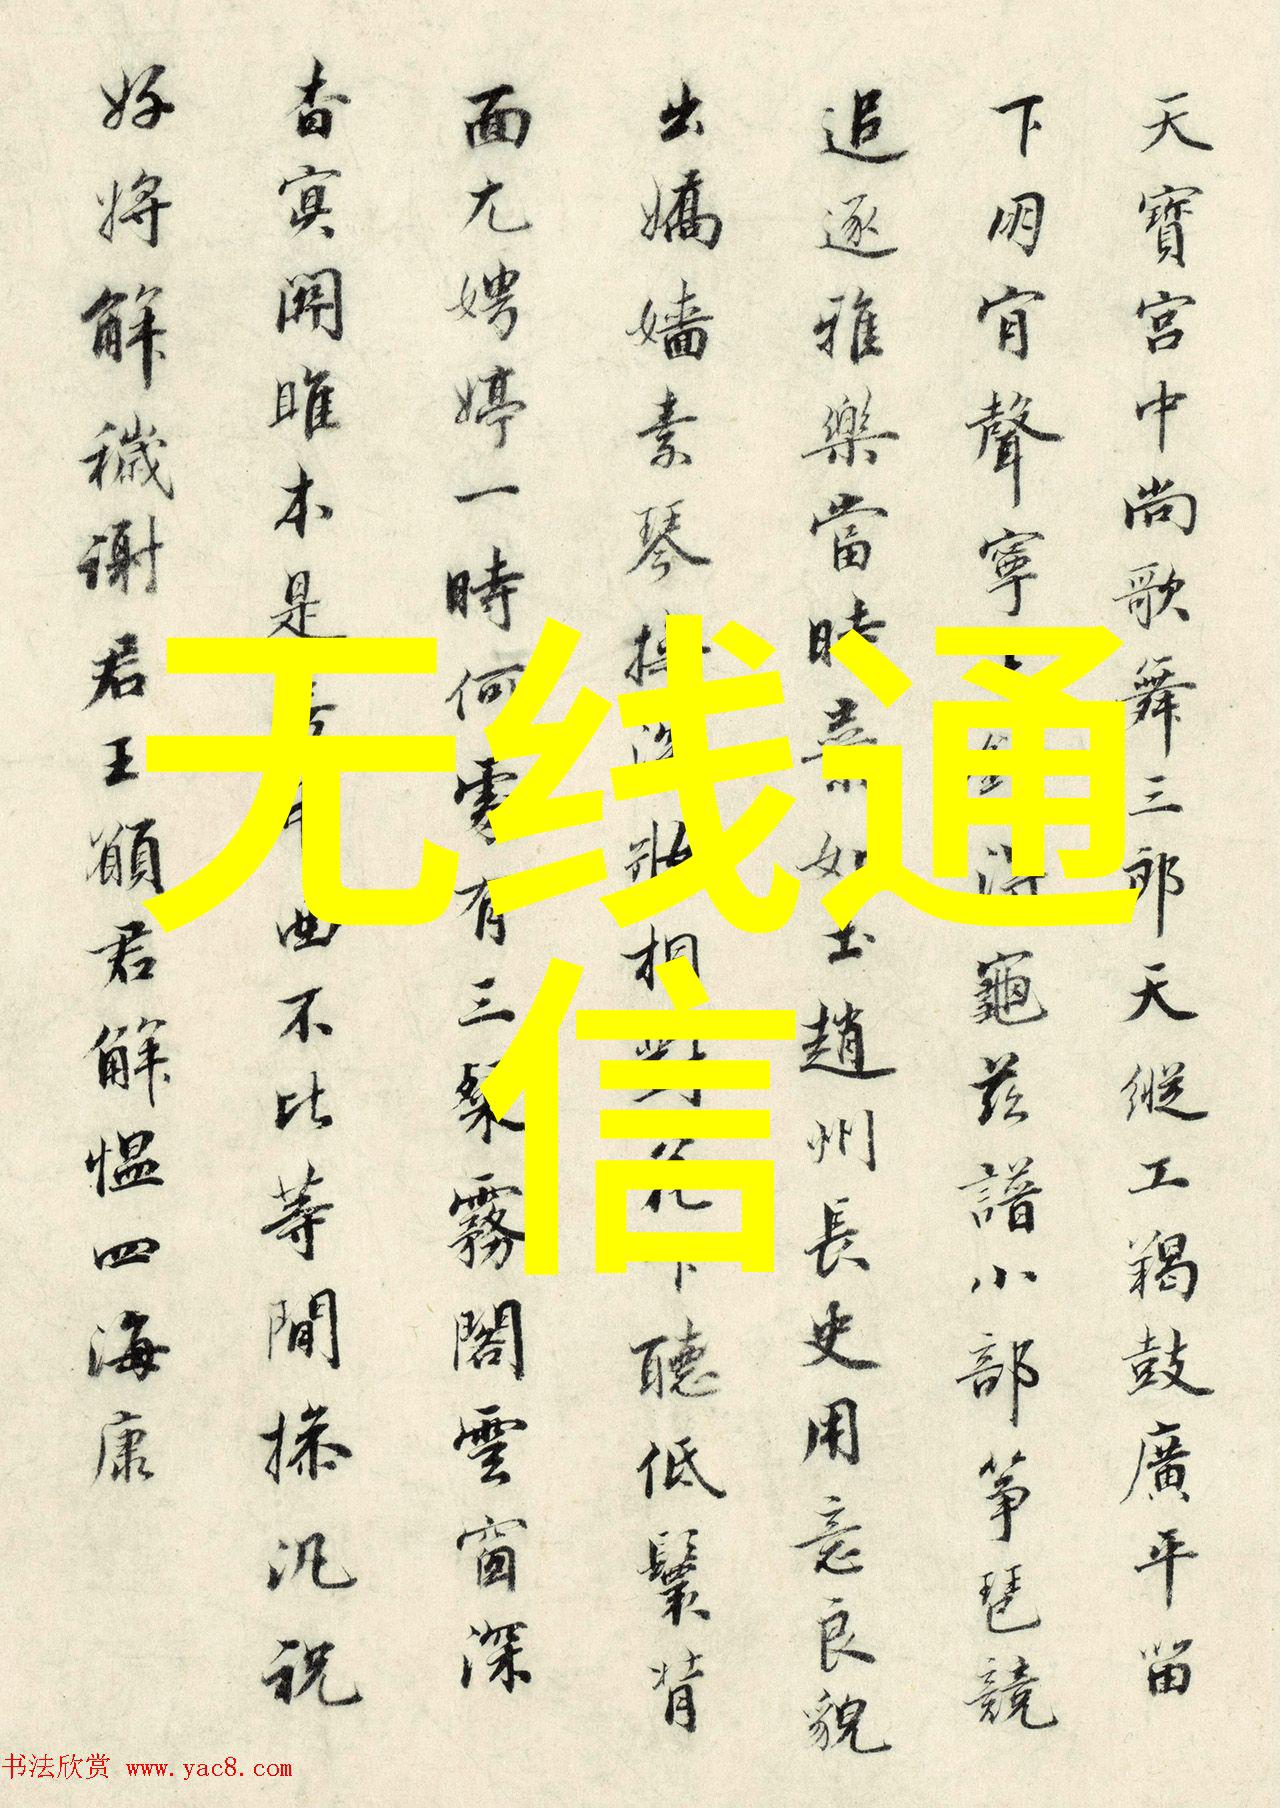 天寶宮中尚歌舞三郎天縱工羯鼓廣平留
下明宵聲寧
龜茲譜小部箏琶競
追逐雅樂當時
趙州長史用意良貌
出嬌嬙素琴
相對花下聽低鬟背
面尤娉婷一時何處有三粲霧閣雲窗深
杳冥關雎本是
曲不比等閒操汎祝
好將解穢謝君王願君解慍四海康
无线通
信
书法欣赏 www.yac8.com